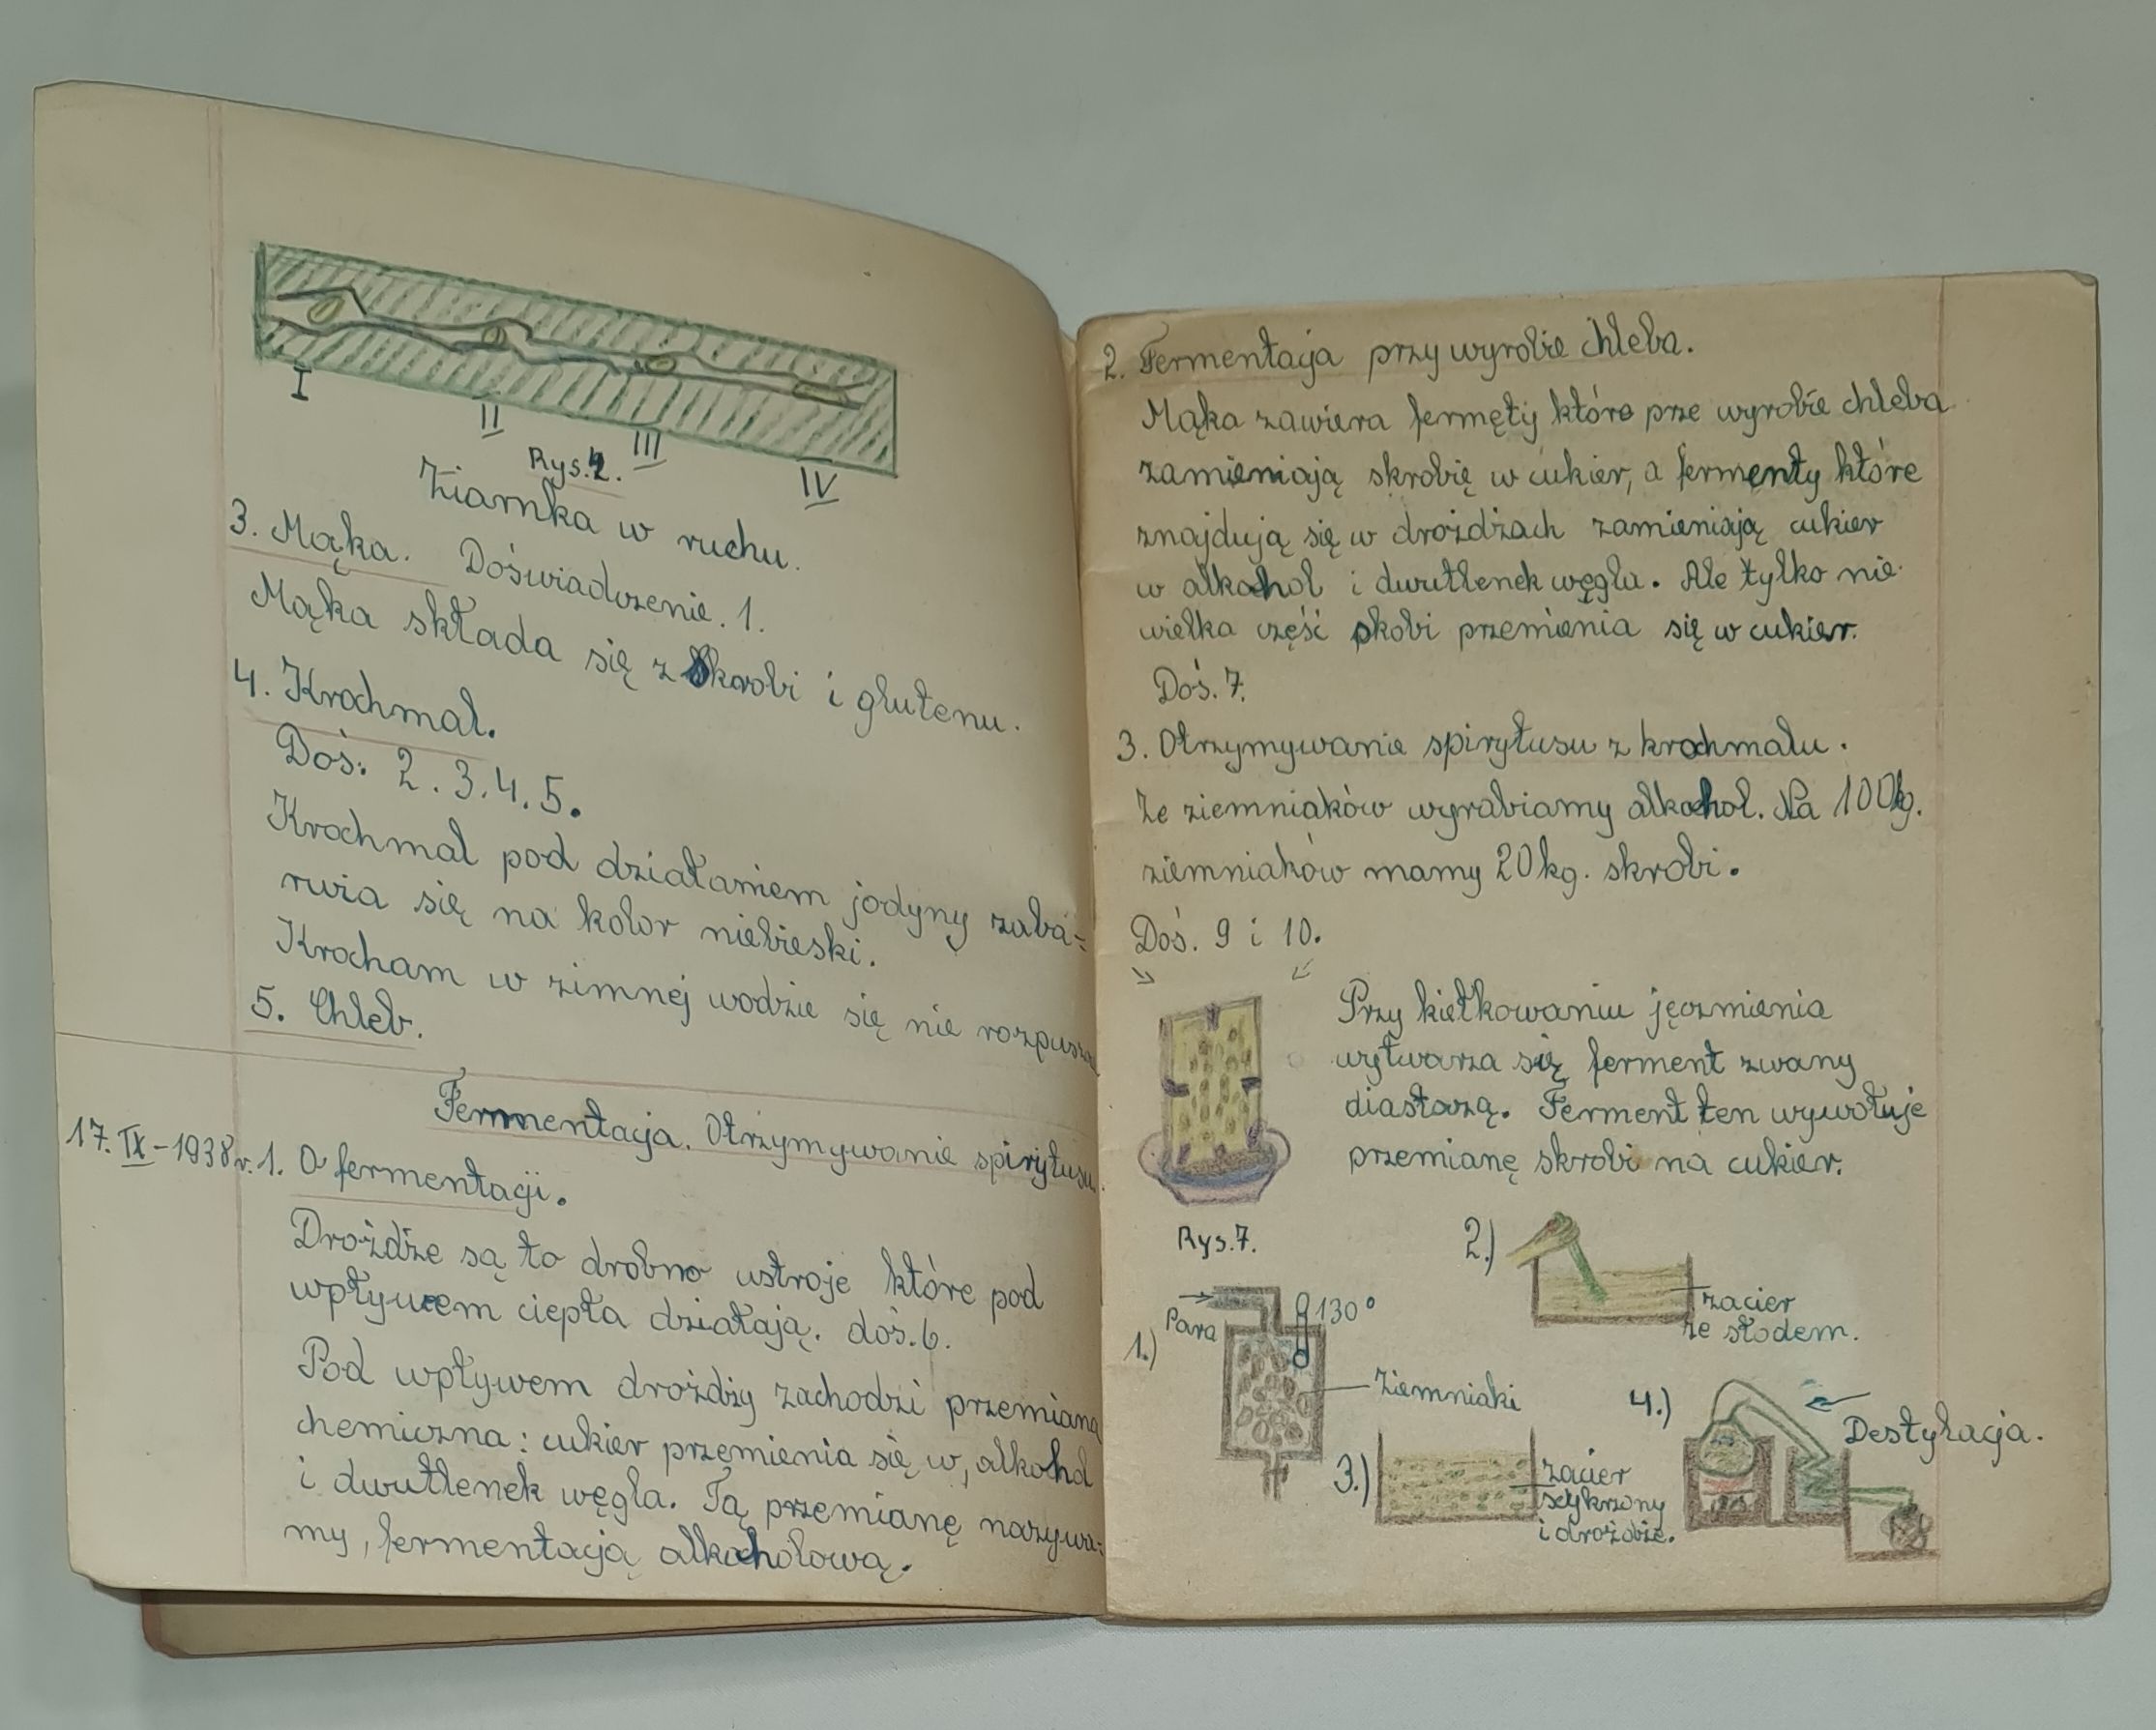 I
II
III
IV
Rys. 2.
Ziarnka w ruchu.
3. Mąka. Doświadczenie. 1.
Mąka składa się z skrobi i glutenu.
4. Krochmal.
Doś. 2. 3. 4. 5.
Krochmal pod działaniem jodyny zaba=
rwia się na kolor niebieski.
Krocham w zimnej wodzie się nie rozpuszcza
5. Chleb.
Fermentacja. Otrzymywanie spirytusu.
17. IX - 1938 r. 1. O fermentacji.
Drożdże są to drobno ustroje które pod
wpływem ciepła działają. doś. 6.
Pod wpływem drożdży zachodzi przemiana
chemiczna: cukier przemienia się w, alkohol
i dwutlenek węgla. Tą przemianę nazywa=
my, fermentacją alkoholową.
2. Fermentacja przy wyrobie chleba.
Mąka zawiera fermęty które prze wyrobie chleba
zamieniają skrobię w cukier, a fermenty które
znajdują się w drożdżach zamieniają cukier
w alkohol i dwutlenek węgla. Ale tylko nie
wielka część skobi przemienia się w cukier.
Doś. 7.
3. Otrzymywanie spirytusu z krochmalu.
Ze ziemniaków wyrabiamy alkohol. Na 100kg.
ziemniaków mamy 20 kg. skrobi.
Doś. 9 i 10.
Przy kiełkowaniu jęczmienia
wytwarza się ferment zwany
diastazą. Ferment ten wywołuje
przemianę skrobi na cukier.
Rys. 7.
2.)
zacier
ze słodem.
1.)
Para
130°
Ziemniaki
3.)
zacier
i drożdże.
4.)
Destylacja.